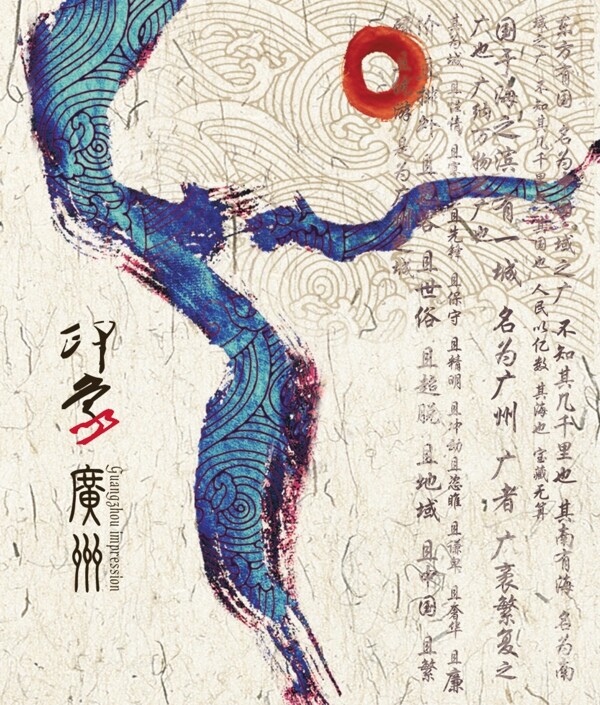 东方有国 名为 域之广 不知其几千里也 其南有海 名为南
域之广 不知其几千里 其国也 人民以亿数 其海也 宝藏无算
国于海之滨 有一城 名为广州 广者 广袤繁复之
广也 广纳万物 广也
其为城 且性情 且 且先锋 且保守 且精明 且冲动 且恣睢 且谦卑 且奢华 且廉
价 且排外 且 容 且世俗 且超脱 且地域 且中国 且繁
是为广州 城
印象
廣州
Guangzhou Impression